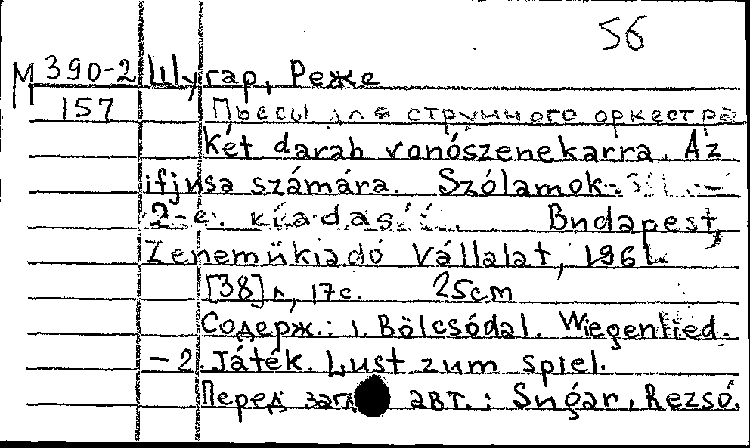 56
М 390-2 Шугар, Реже
157 Пьесы для струнного оркестра
Két darab vonószenekarra. Az
ifjusa számára. Szólamok.
2-e. kiadas. Budapest,
Zeneműkiadó Vállalat, 1961.
[38] л, 17с. 25cm
Содерж.: 1. Bölcsódal. Wiegenlied.
– 2 Játék. Lust zum spiel.
Перед загл авт.: Sugár, Rezsó.